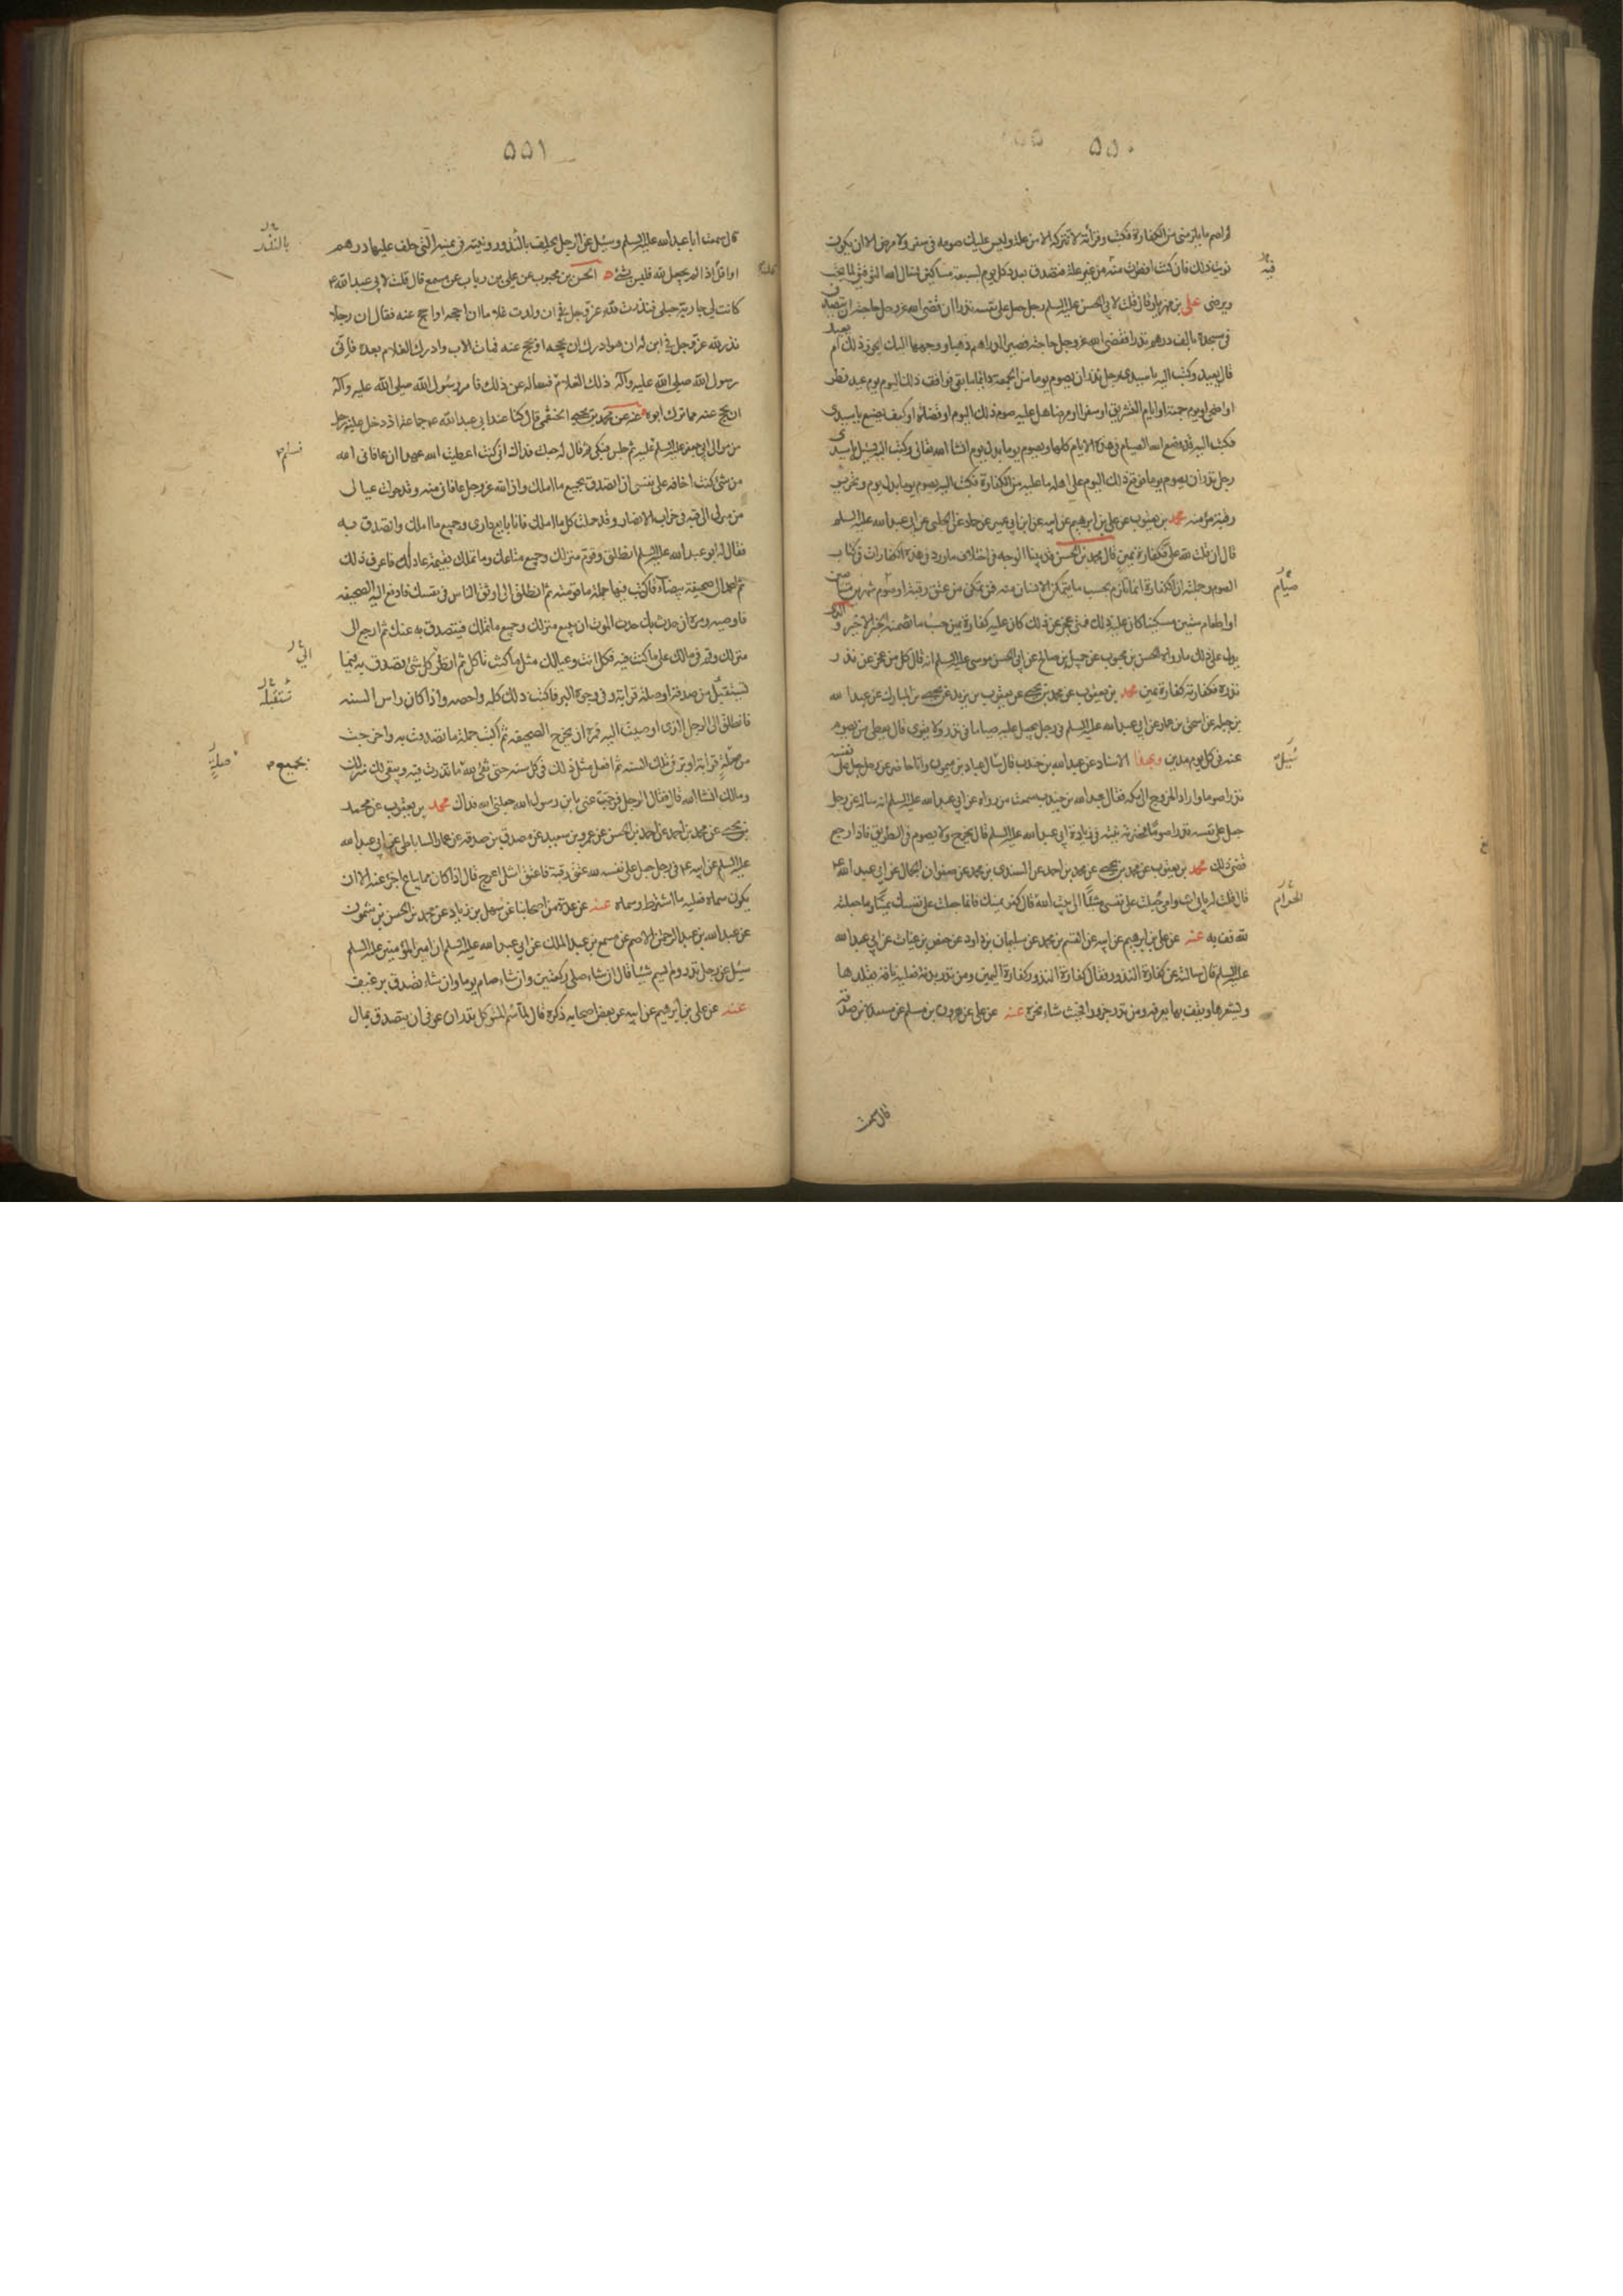 ٥٥٠
لم اصم ما يلزمنى من الكفارة فكتب وقرأته لا تتركه الا من علة وليس عليك صومه فى سفر ولا مرض الا ان يكون
نويت ذلك فان كنت افطرت منه من غير علة فتصدق بعدد كل يوم لسبعة مساكين نسال الله التوفيق لما يحب
ويرضى على بن مهزيار قال قلت لابى الحسن عليه السلم رجل جعل على نفسه نذرا ان قضى الله عز وجل حاجته ان يتصدق
فى مسجده بالف درهم نذرا فقضى الله عز وجل حاجته فصير الدراهم ذهبا ووجهها اليك ايجوز ذلك ام يعيد
قال يعيد وكتب اليه يا سيدى رجل نذر ان يصوم يوما من الجمعة دائما ما بقى فوافق ذلك اليوم يوم عيد فطر
او اضحى او يوم جمعة او ايام التشريق او سفر او مرض هل عليه صوم ذلك اليوم او قضاؤه او كيف يصنع يا سيدى
فكتب اليه قد وضع الله الصيام فى هذه الايام كلها ويصوم يوما بدل يوم انشا الله تعالى وكتب اليه يسئله يا سيدى
رجل نذر ان يصوم يوما فوقع ذلك اليوم على اهله ما عليه من الكفارة فكتب اليه يصوم يوما بدل يوم وتحرير
رقبة مؤمنه محمد بن يعقوب عن على بن ابرهيم عن ابيه عن ابن ابى عمير عن حماد عن الحلبى عن ابى عبد الله عليه السلم
قال ان قلت لله على فكفارة يمين قال محمد بن الحسن قد بينا الوجه فى اختلاف ما ورد فى هذه الكفارات فى كتاب
الصوم وجملته ان الكفارة انما تلزم بحسب ما يتمكن الانسان منه فمن تمكن من عتق رقبة او صوم شهرين متتابعين
او اطعام ستين مسكينا كان عليه ذلك فمتى عجز عن ذلك كان عليه كفارة يمين حسب ما تضمنه الخبر الاخير والذى
يدل على ذلك ما رواه الحسن بن محبوب عن جميل بن صالح عن ابى الحسن موسى عليه السلم انه قال كل من عجز عن نذر
نذره فكفارته كفارة يمين محمد بن يعقوب عن محمد بن يحيى عن يعقوب بن يزيد عن يحيى بن المبارك عن عبد الله
بن جبله عن اسحق بن عمار عن ابى عبد الله عليه السلم فى رجل يجعل عليه صياما فى نذر ولا يقوى قال يعطى من يصوم
عنه فى كل يوم مدين وبهذا الاسناد عن عبد الله بن جندب قال سال عباد بن ميمون وانا حاضر عن رجل جعل على نفسه
نذرا صوما واراد الخروج الى مكه فقال عبد الله بن جندب سمعت من رواه عن ابى عبد الله عليه السلم انه ساله عن رجل
جعل على نفسه نذرا صوما فحضرته نيته فى زيارة ابى عبد الله عليه السلم قال يخرج ولا يصوم فى الطريق فاذا رجع
قضى ذلك محمد بن يعقوب عن محمد بن يحيى عن محمد بن احمد عن السندى بن محمد عن صفوان الجمال عن ابى عبد الله ع
قال قلت له بابى انت وامى جعلت على نفسى مشيا الى بيت الله قال كفر يمينك فانما جعلت على نفسك يمينا وما جعلته
لله فف به عنه عن على بن ابرهيم عن ابيه عن القسم بن محمد عن سليمان بن داود عن حفص بن غياث عن ابى عبد الله
عليه السلم قال سالته عن كفارة النذور فقال كفارة النذور كفارة اليمين ومن نذر بدنة فعليه ناقة يقلدها
ويشعرها ويقف بها بعرفه ومن نذر جزورا فحيث شاء نحره عنه عن على عن هرون بن مسلم عن مسعدة بن صدقه
فيه
صيام
سئل
الحرام
قال سمعت
٥٥١
قال سمعت ابا عبد الله عليه السلم وسئل عن الرجل يحلف بالنذور ونيته فى يمينه التى حلف عليها درهم
او اقل اذا لم يجعل لله فليس بشئ الحسن بن محبوب عن على بن رياب عن مسمع قال قلت لابى عبد الله ع
كانت لى جارية حبلى فنذرت لله عز وجل فى ان ولدت غلاما ان احجه او احج عنه فقال ان رجلا
نذر لله عز وجل فى ابن له ان هو ادرك ان يحجه او يحج عنه فمات الاب وادرك الغلام بعده فاتى
رسول الله صلى الله عليه وآله ذلك الغلام فساله عن ذلك فامر رسول الله صلى الله عليه وآله
ان يحج عنه مما ترك ابوه عنه عن محمد بن يحيى الخثعمى قال كنا عند ابى عبد الله ع جماعة اذ دخل عليه رجل
من موالى ابى جعفر عليه السلم فسلم عليه ثم جلس فبكى ثم قال له جعلت فداك انى كنت اعطيت الله عهدا ان عافانى الله
من شئ كنت اخافه على نفسى ان اتصدق بجميع ما املك وان الله عز وجل عافانى منه وقد حولت عيالى
من منزلى الى قبة فى خراب الانصار وقد حملت كل ما املك فانا بايع دارى وجميع ما املك واتصدق به
فقال ابو عبد الله عليه السلم انطلق وقوم منزلك وجميع متاعك وما تملك بقيمة عادلة فاعرف ذلك
ثم اعمد الى صحيفة بيضاء فاكتب فيها جملة ما قومته ثم انطلق الى اوثق الناس فى نفسك فادفع اليه الصحيفه
واوصه ومره ان حدث بك حدث الموت ان يبيع منزلك وجميع ما تملك فيتصدق به عنك ثم ارجع الى
منزلك وقم فى مالك على ما كنت فيه فكل انت وعيالك مثل ما كنت تاكل ثم انظر كل شئ تصدق به فيما
تستقبل من صدقة او صلة قرابة وفى وجوه البر فاكتب ذلك كله واحصه واذا كان راس السنه
فانطلق الى الرجل الذى اوصيت اليه فمره ان يخرج الصحيفه ثم اكتب جملة ما تصدقت به واخرجت
من صلة قرابة او بر فى تلك السنه ثم افعل مثل ذلك فى كل سنه حتى تفى لله بما نذرت فيه ويبقى لك منزلك
ومالك انشا الله قال فقال الرجل فرجت عنى يا بن رسول الله جعلنى الله فداك محمد بن يعقوب عن محمد
بن يحيى عن محمد بن احمد عن احمد بن الحسن عن عمرو بن سعيد عن مصدق بن صدقه عن عمار الساباطى عن ابى عبد الله
عليه السلم عن ابيه ع فى رجل جعل على نفسه لله عتق رقبة فاعتق اشل اعرج قال اذا كان مما يباع اجزئ عنه الا ان
يكون سماه فعليه ما اشترط وسماه عنه عن عدة من اصحابنا عن سهل بن زياد عن محمد بن الحسن بن شمون
عن عبد الله بن عبد الرحمن الاصم عن مسمع بن عبد الملك عن ابى عبد الله عليه السلم ان امير المؤمنين عليه السلم
سئل عن رجل نذر ولم يسم شيئا قال ان شاء صلى ركعتين وان شاء صام يوما وان شاء تصدق برغيف
عنه عن على بن ابرهيم عن ابيه عن بعض اصحابه ذكره قال لما سم المتوكل نذر ان عوفى ان يتصدق بمال
بالنذر
فسلم
الى
تستقبله
بجميع
صلة